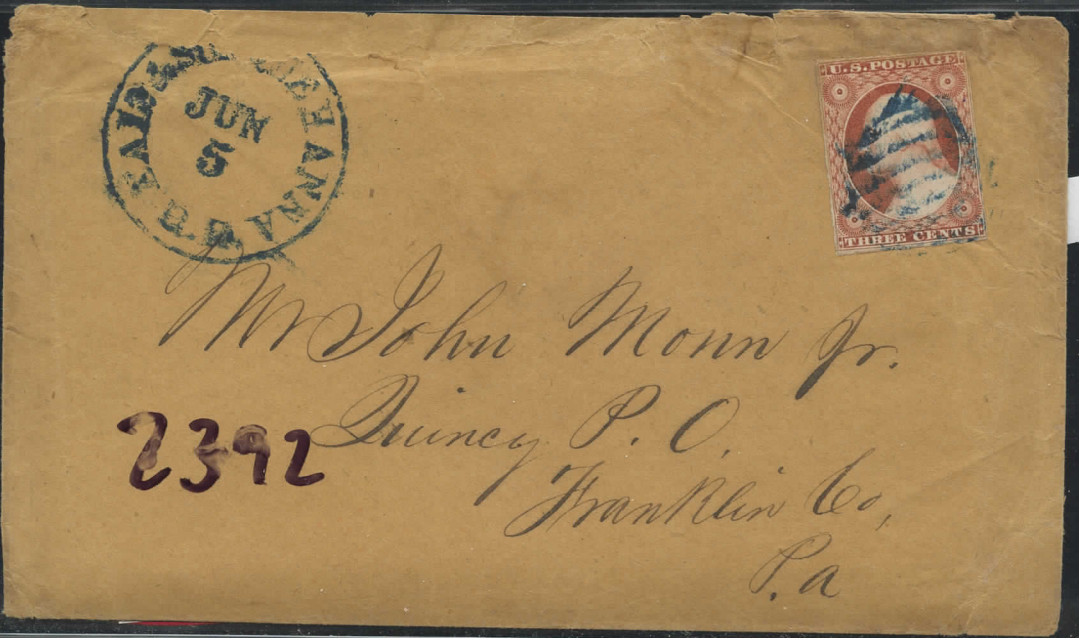 BALT. & SUSQUEHANNA
R.R.
JUN
5
U.S. POSTAGE
THREE CENTS
Mr John Monn Jr.
Quincy P. O.
Franklin Co,
P.a
2392